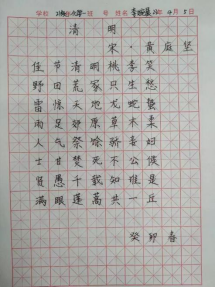 学校 班 号 姓名 年 4 月 5 日
清 明
宋 · 黄 庭 坚
佳 节 清 明 桃 李 笑
野 田 荒 冢 只 生 愁
雷 惊 天 地 龙 蛇 蛰
雨 足 郊 原 草 木 柔
人 乞 祭 余 骄 妾 妇
士 甘 焚 死 不 公 侯
贤 愚 千 载 知 谁 是
满 眼 蓬 蒿 共 一 丘
癸 卯 春